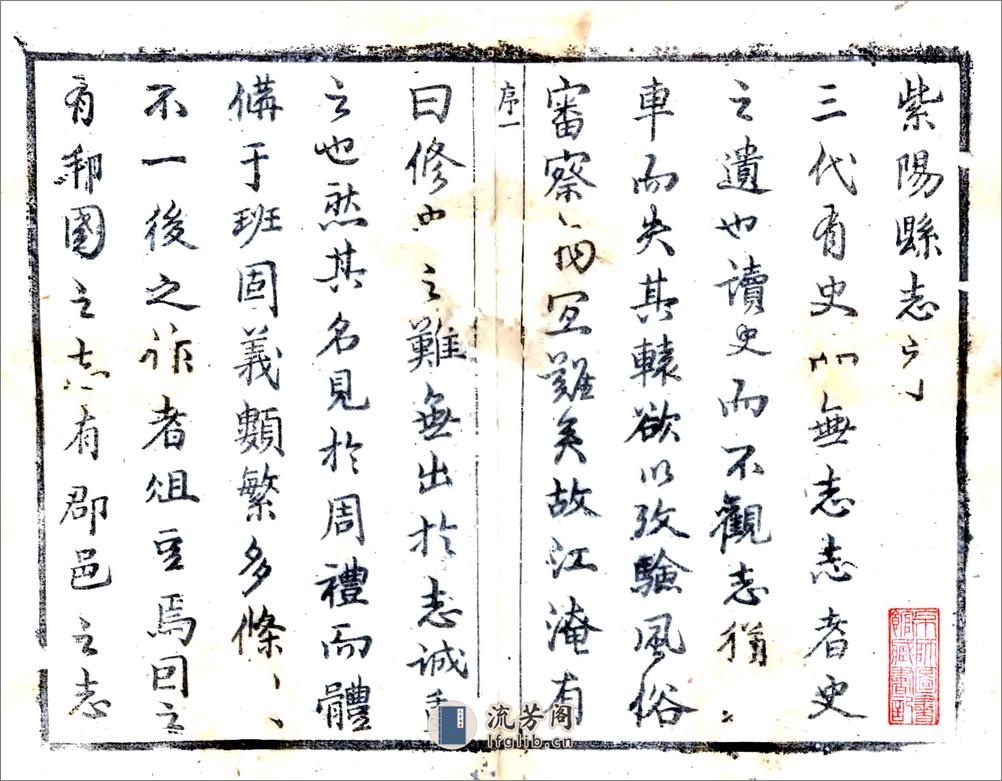 紫陽縣志序
三代有史無志志者史
之遺也讀史而不觀志猶
車而失其轅欲以攷驗風俗
審察宜難矣故江淹有
序一
曰修之難無出於志誠
之也然其名見於周禮而體
備于班固義類繁多條
不一後之作者俎豆焉因之
有邦國之志有郡邑之志
京師圖書館藏書記
流芳阁
lfglib.cn